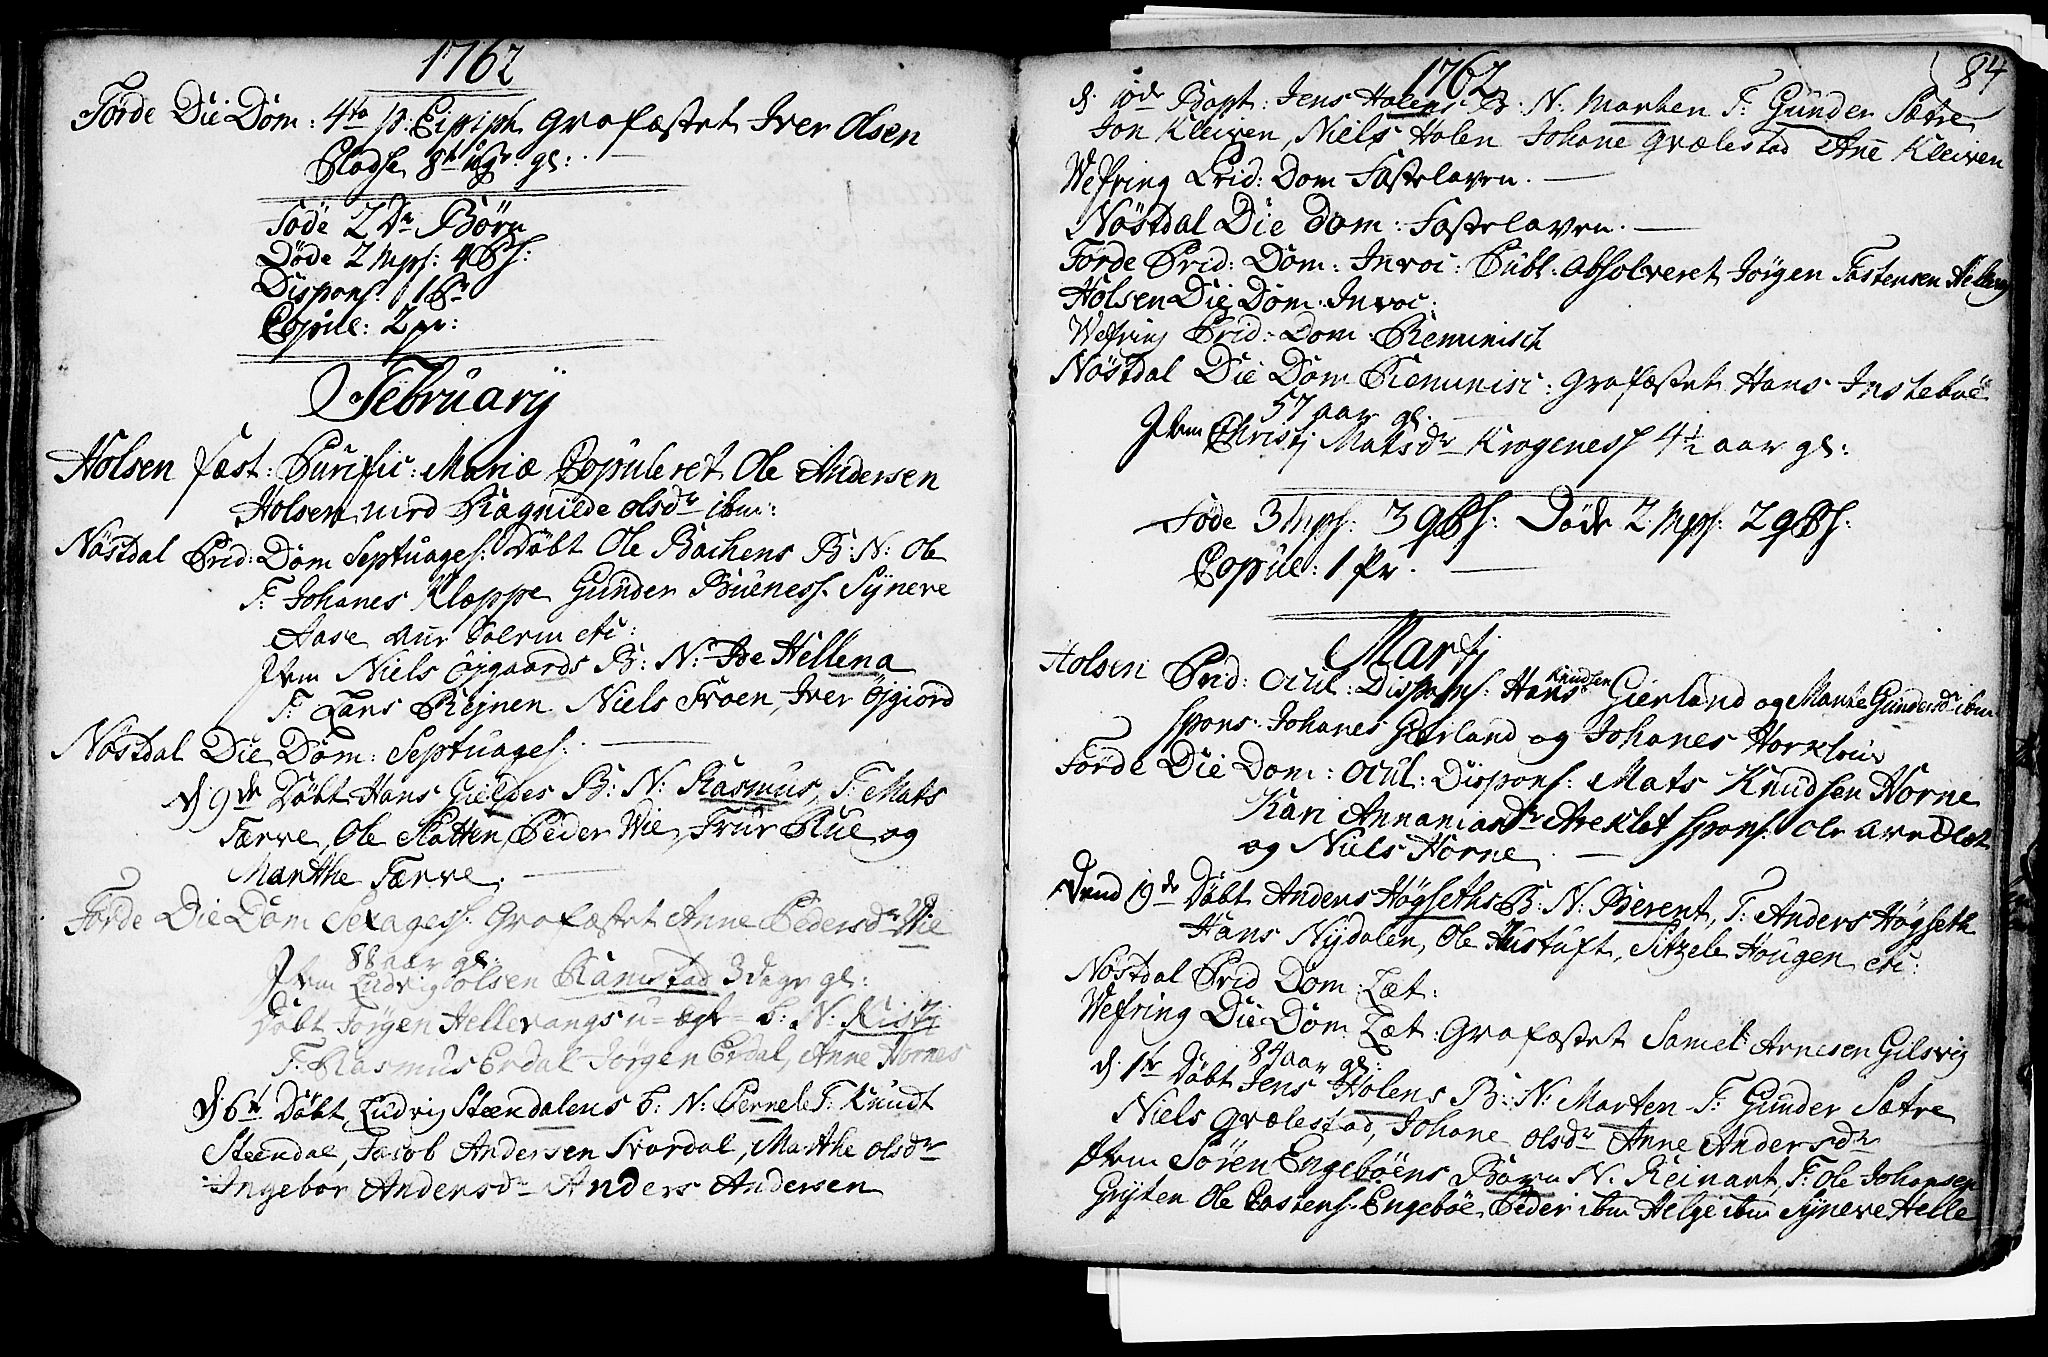 1762
Førde Die Dom: 4ta p: Epiph: grafæstet Iver Olsen
gl:
Føde 2 Dr Børn
Døde 2 Mps: 4
Dispons: 1
Copul: 2 pr:
February
Holsen fest: Purific: Mariæ Copuleret Ole Andersen
Holsen med Ragnilde olsdr ibm:
Nøstdal Prid: Dom Septuages: Døbt Ole Bachens B: N: Ole
F: Johanes Kloppe Gunder Bueness Syneve
Aase etc:
Item Niels øygaards B: N: Hellena
F: Lars Rejnen Niels Froen, Iver øjgiord
Nøstdal Die Dom: Septuages:
d: 9de Døbt Hans Gieldes B: N: Rasmus, F: Mats
Færve, Ole Slatten Peder Wie, Rue og
Marthe Færve.
Førde Die Dom Sexages: Grafæstet Anne Pedersdr Wie
88 aar gl:
Item Ludvig olsen Ramstad 3 dage gl:
Døbt Jørgen Hellevangs u= egt= b: N: Kisti
F: Rasmus Erdal Jørgen Erdal, Anne Hornes
d: 6t Døbt Ludvig Steendalens b: N: Pernele F: Knudt
Steendal, Jacob Andersen Svardal, Marthe olsdr
Ingebor Andersdr Anders Andersen
1762
84
d: 10de Bapt: Jens Holens B: N: Marten F: Gunder Sætre
Jon Kleiven, Niels Holen Johane qvælestad Ane Kleiven
Wefring Prid: Dom Fastelaven.
Nøstdal Die Dom: Fastelaven.
Førde Prid: Dom: Invoc: Publ: Absolveret Jørgen Tostensen
Holsen Die Dom: Invoc:
Wefring Prid: Dom Reminisc
Nøstdal Die Dom Reminisc: grafæstet Hans Instebøe
57 aar gl.
Item Christj Matsdr Krogeness 4½ aar gl:
Føde 3 Mps: 3 qvps: Døde 2 Mps: 2 qvps:
Copul: 1 Pr.
Martj
Holsen Prid: Ocul: Dispons: Hans Knudsen Gierland og Marte Gundersdr ibm
spons: Johanes Gierland og Johanes
Førde Die Dom: Ocul: Dispons: Mats Knudsen Horne
Kari Annaniasdr Areklet spons: Ole Areklet
og Niels Horne
Dend 19de Døbt Anders Høgseths B: N: Berent, F: Anders Høgseth
Hans Nydalen, Ole Hustuft, Sitzele Hougen etc:
Nøstdal Prid Dom: Læt:
Wefring Die Dom Læt: Grafæstet Samel Arnesen Gilsvig
84 aar gl:
d. 1te Døbt Jens Holens B: N: Marten F: Gunder Sætre
Niels qvælestad, Johane olsdr Anne Andersdr
Item Søren Engebøens Barn N: Reinart, F: Ole Johansen
Gryten Ole Engebøe, Peder ibm Helge ibm Syneve Helle